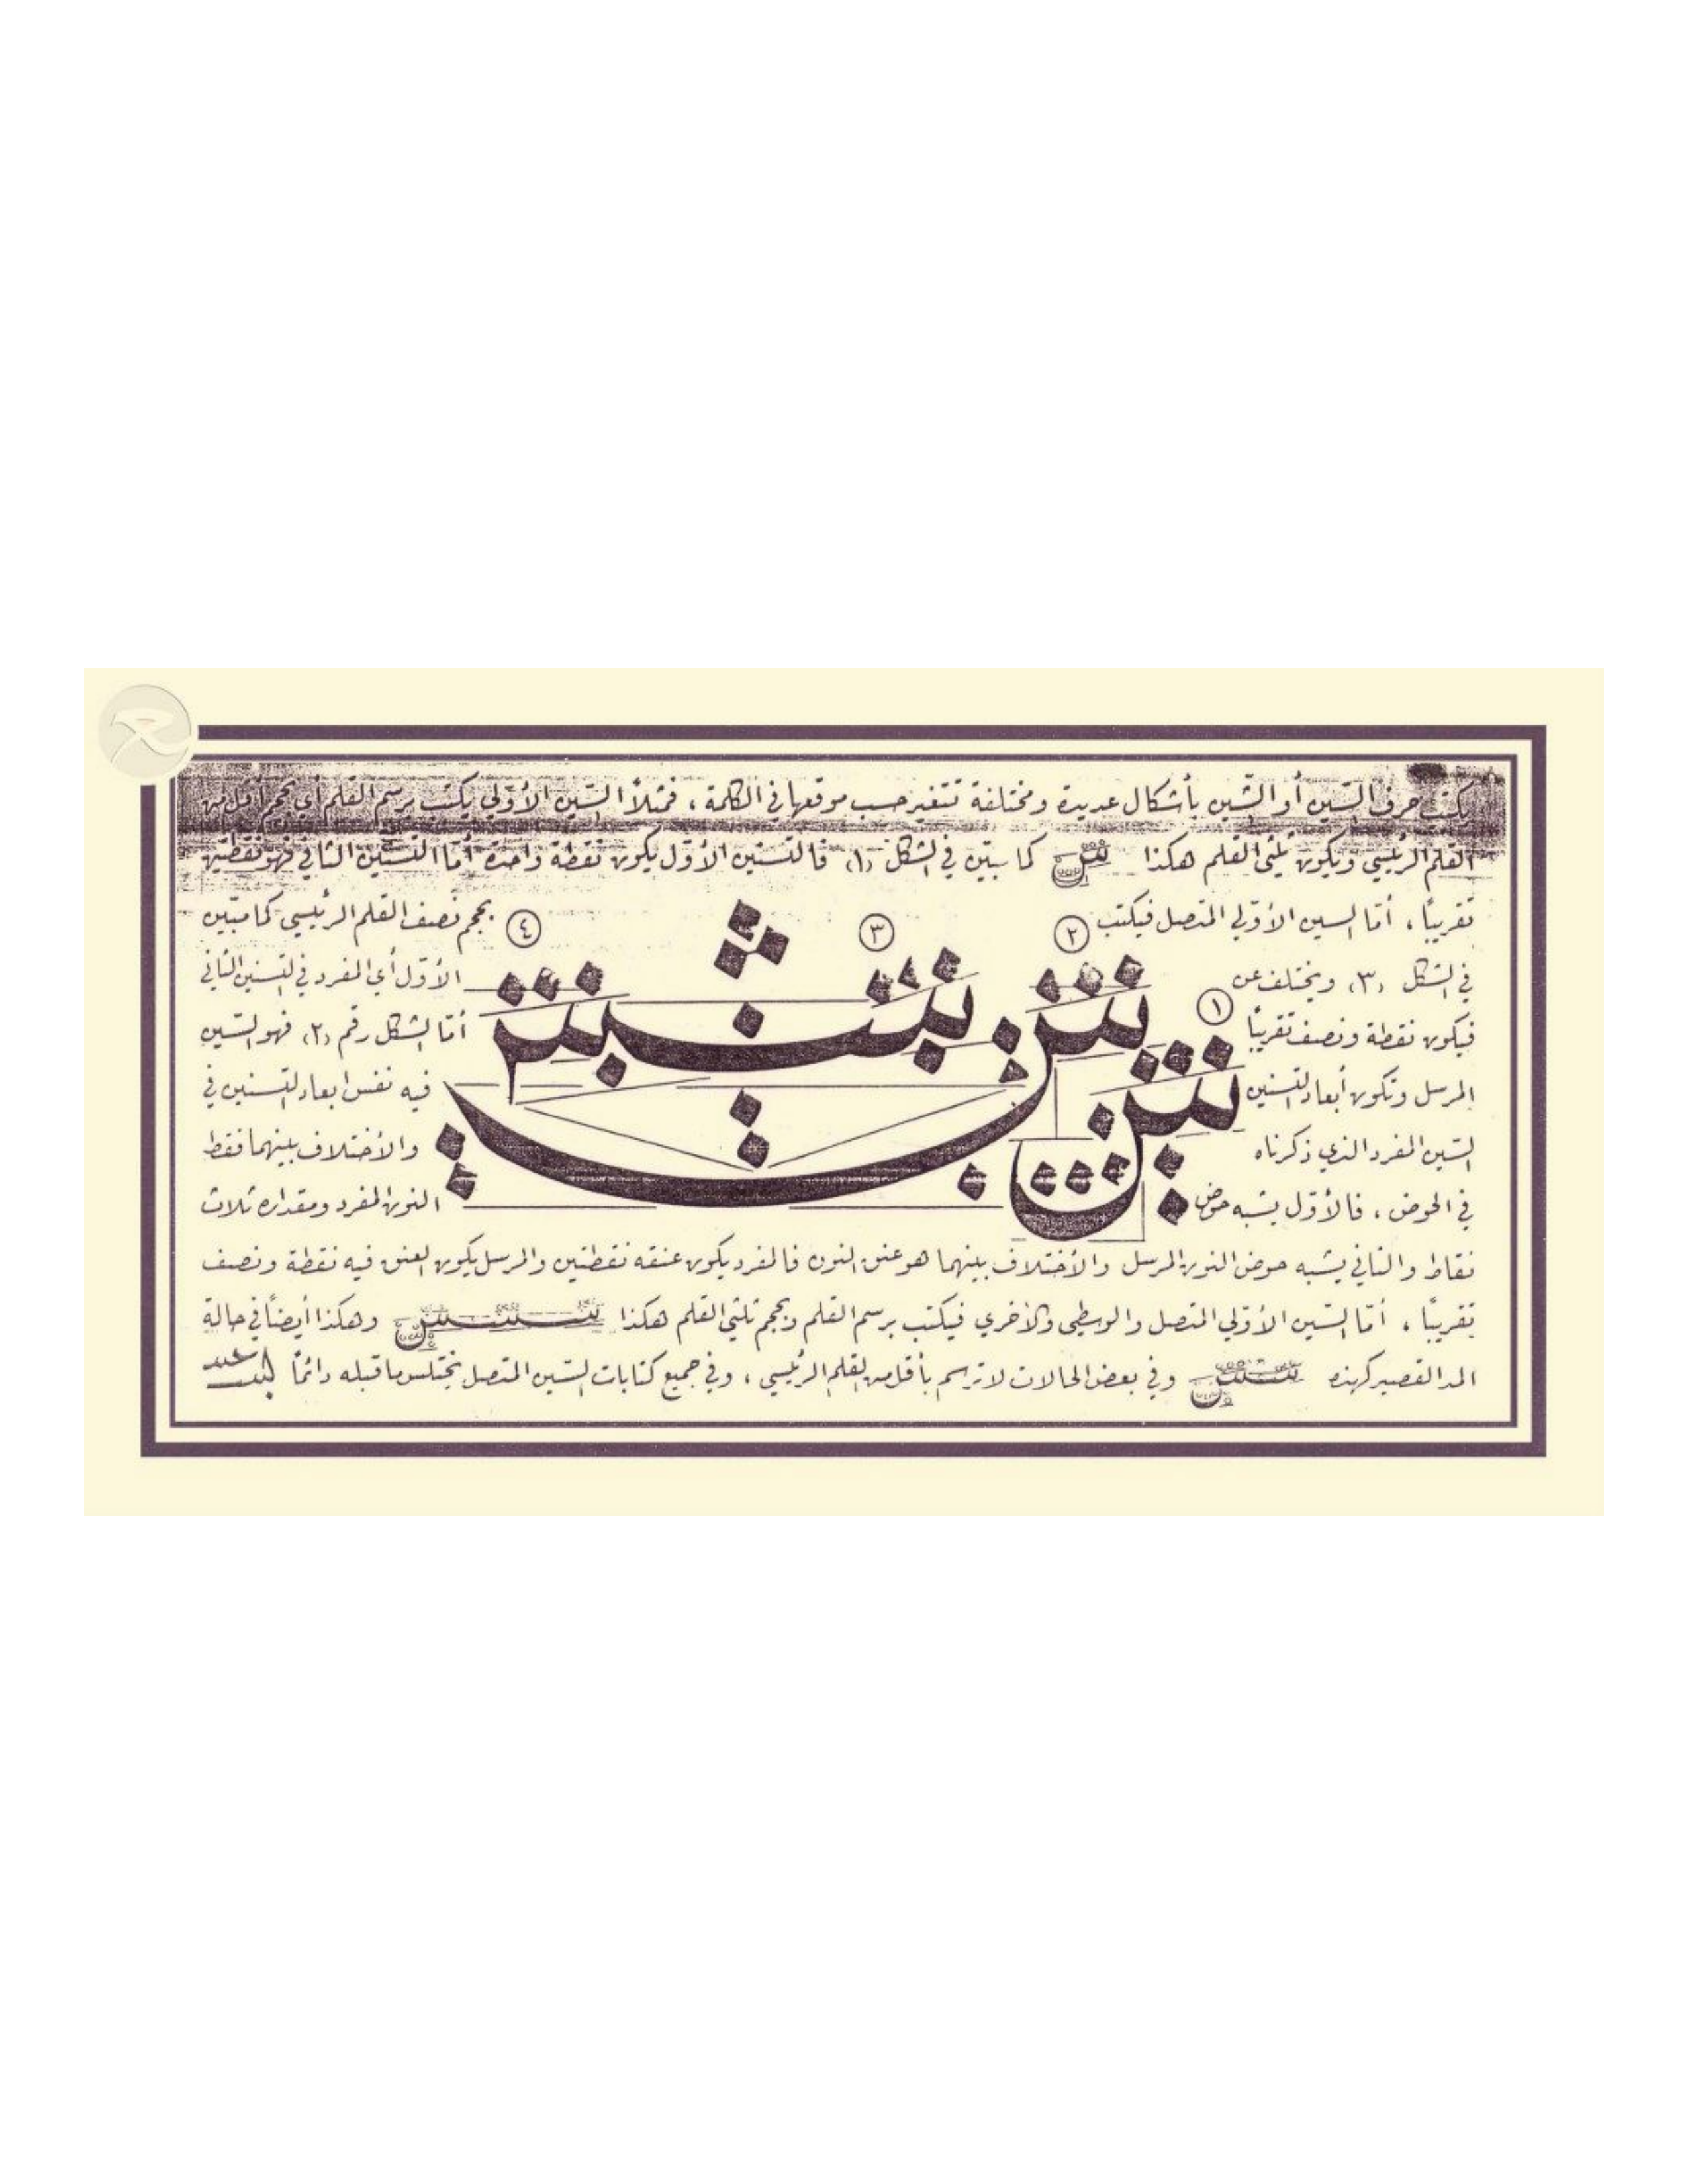 يكتب حرف السّين أو الشّين بأشكال عديدة ومختلفة تتغير حسب موقعها في الكلمة ، فمثلاً السّين الأوّلي يكتب برسم القلم أي بحجم أقل من
القلم الرئيسي ويكون ثلثي القلم هكذا كما مبيّن في الشكل (١) فالتسنين الأوّل يكون نقطة واحدة أمّا التسنين الثاني فهو نقطتين
تقريبًا ، أمّا السين الأوّلي المتصل فيكتب بحجم نصف القلم الرئيسي كما مبيّن
٢ ٣ ٤
في الشكل (٣) ويختلف عن الأوّل أي المفرد في التسنين الثاني
١
فيكون نقطة ونصف تقريبًا أمّا الشكل رقم (٢) فهو السّين
المرسل وتكون أبعاد التسنين فيه نفس ابعاد التسنين في
السّين المفرد الذي ذكرناه والأختلاف بينهما فقط
في الحوض ، فالأوّل يشبه حوض النون المفرد ومقداره ثلاث
نقاط والثاني يشبه حوض النون المرسل والأختلاف بينهما هو عنق النون فالمفرد يكون عنقه نقطتين والمرسل يكون العنق فيه نقطة ونصف
تقريبًا ، أمّا السّين الأوّلي المتصل والوسطي والأخري فيكتب برسم القلم وبحجم ثلثي القلم هكذا وهكذا أيضًا في حالة
المد القصير كهذه وفي بعض الحالات لا ترسم بأقل من القلم الرئيسي ، وفي جميع كتابات السّين المتصل يختلس ما قبله دائمًا